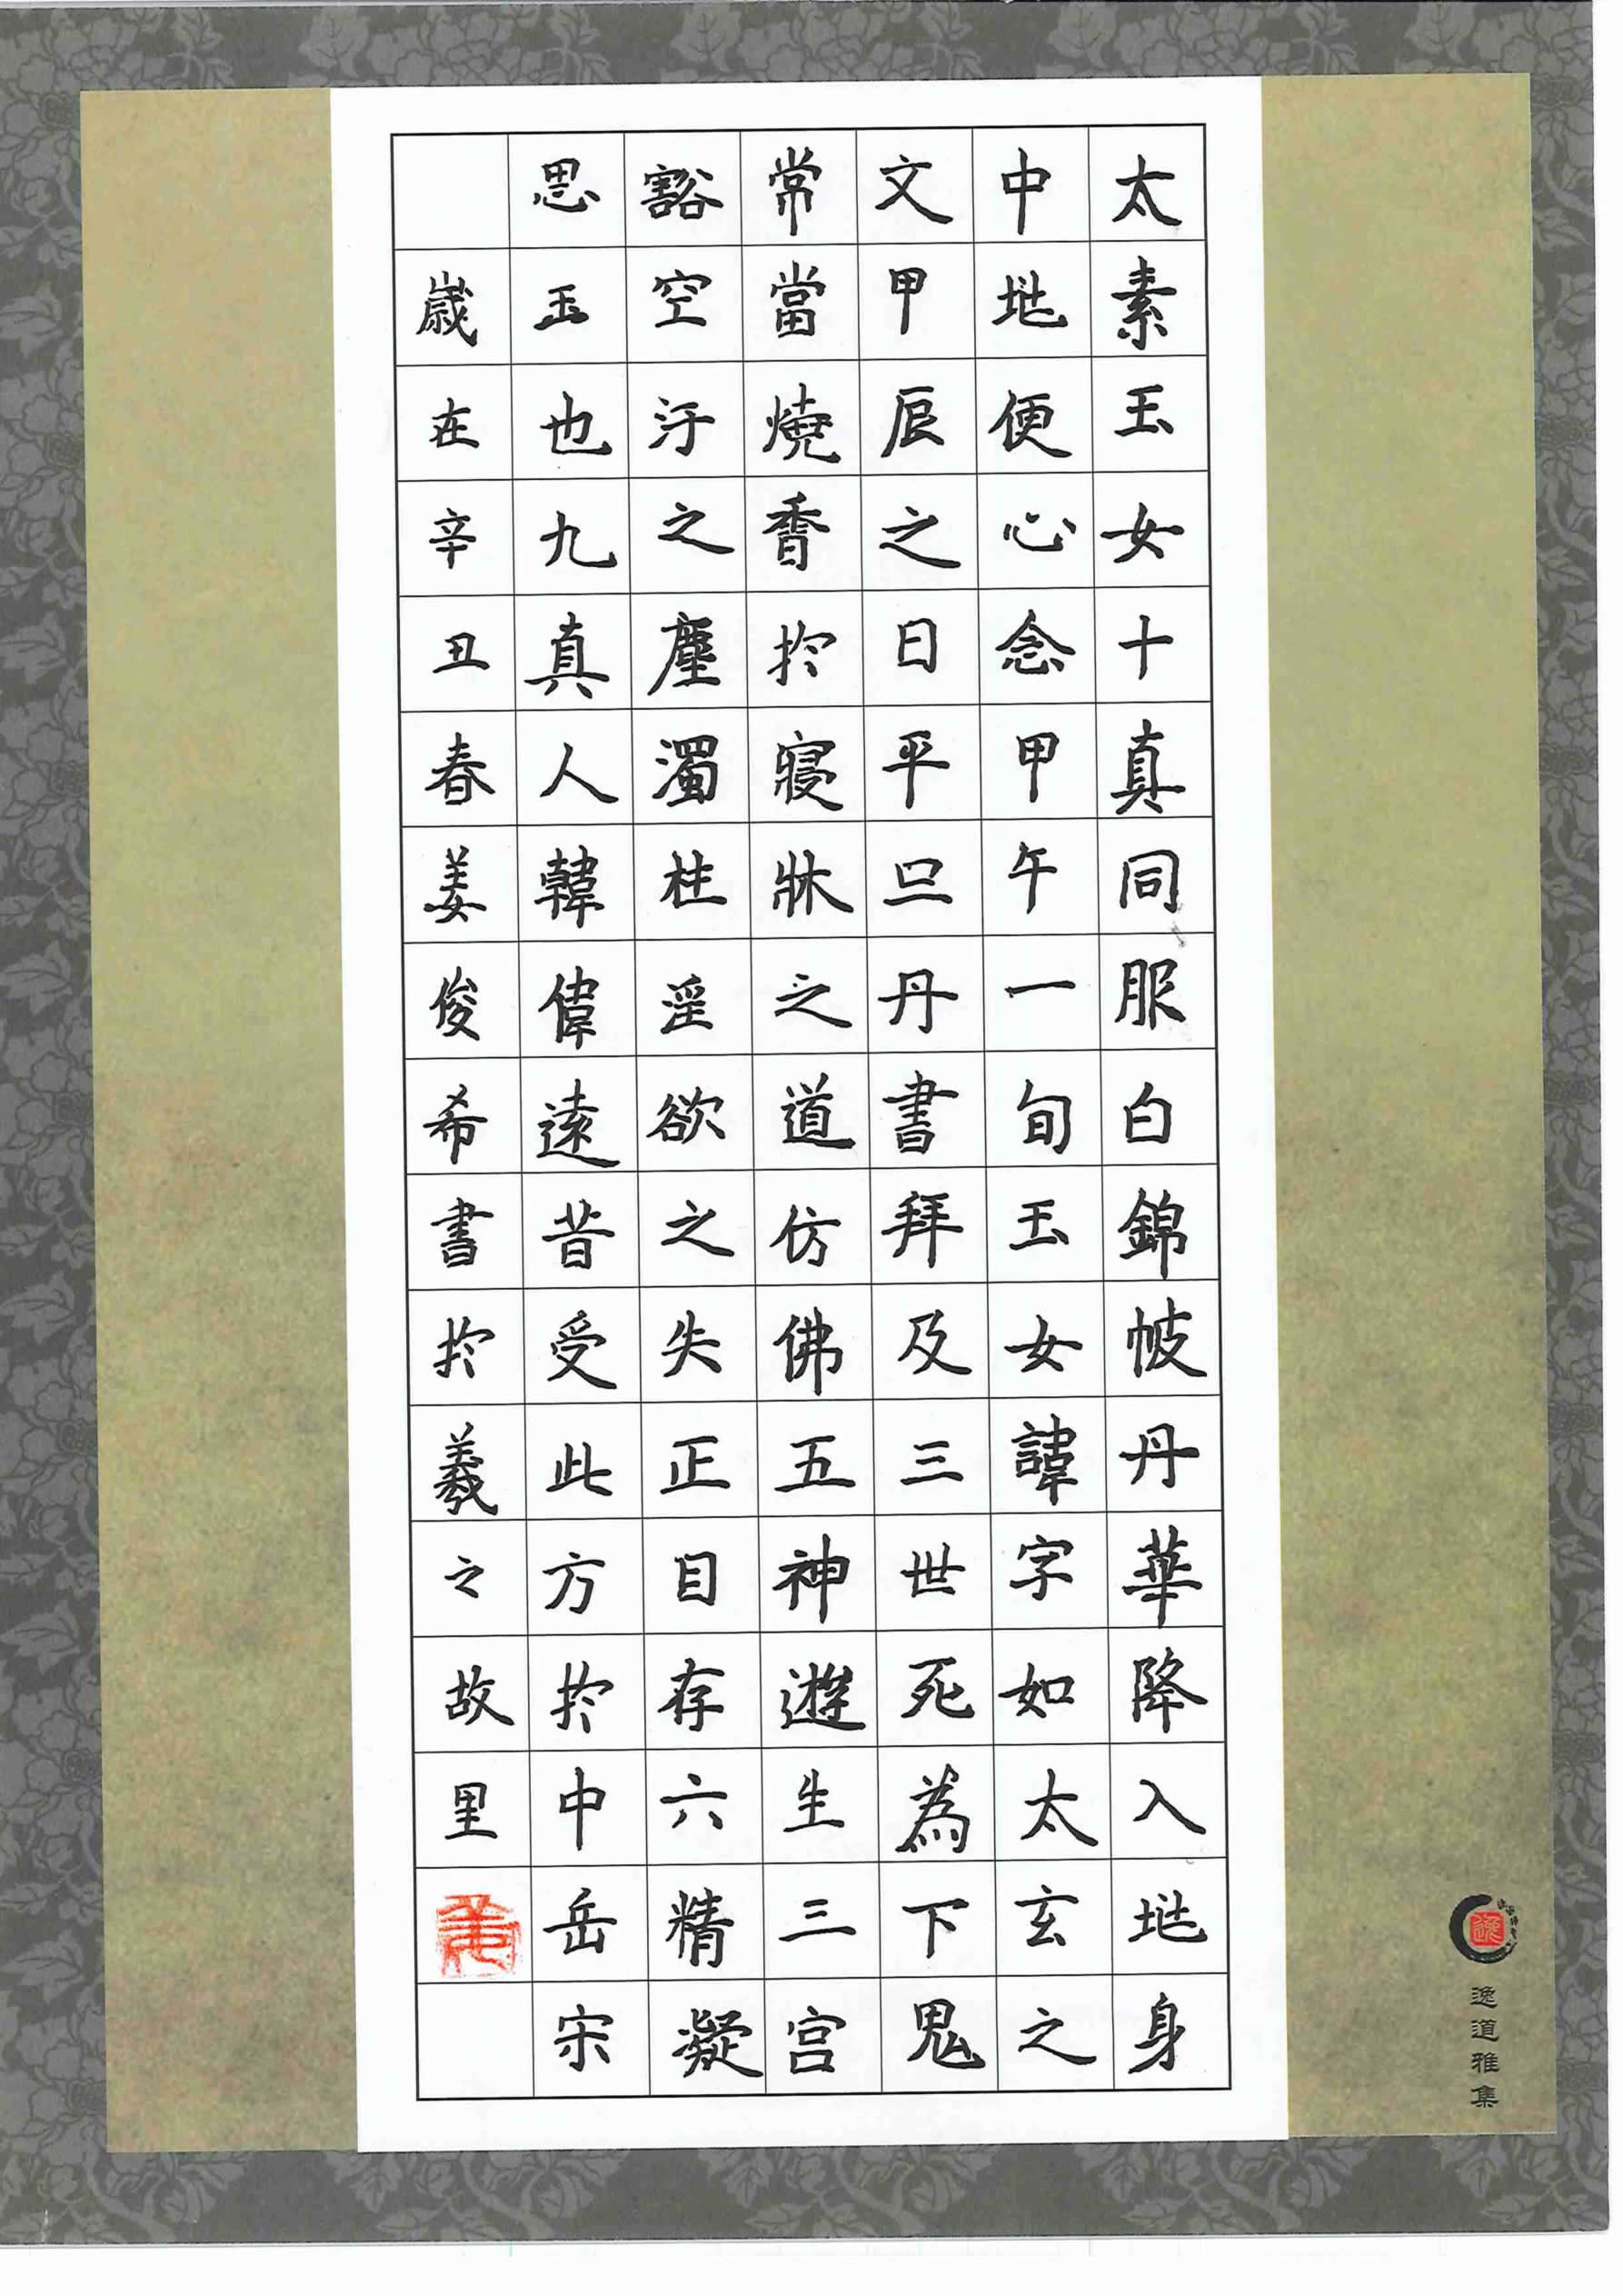 太素玉女十真同服白錦帔丹華降入地身
中地便心念甲午一旬玉女諱字如太玄之
文甲辰之日平旦丹書拜及三世死為下鬼
常當燒香於寢牀之道仿佛五神遊生三宮
豁空汙之塵濁柱淫欲之失正目存六精凝
思玉也九真人韓偉遠昔受此方於中岳宋
歲在辛丑春姜俊希書於羲之故里
逸道雅集